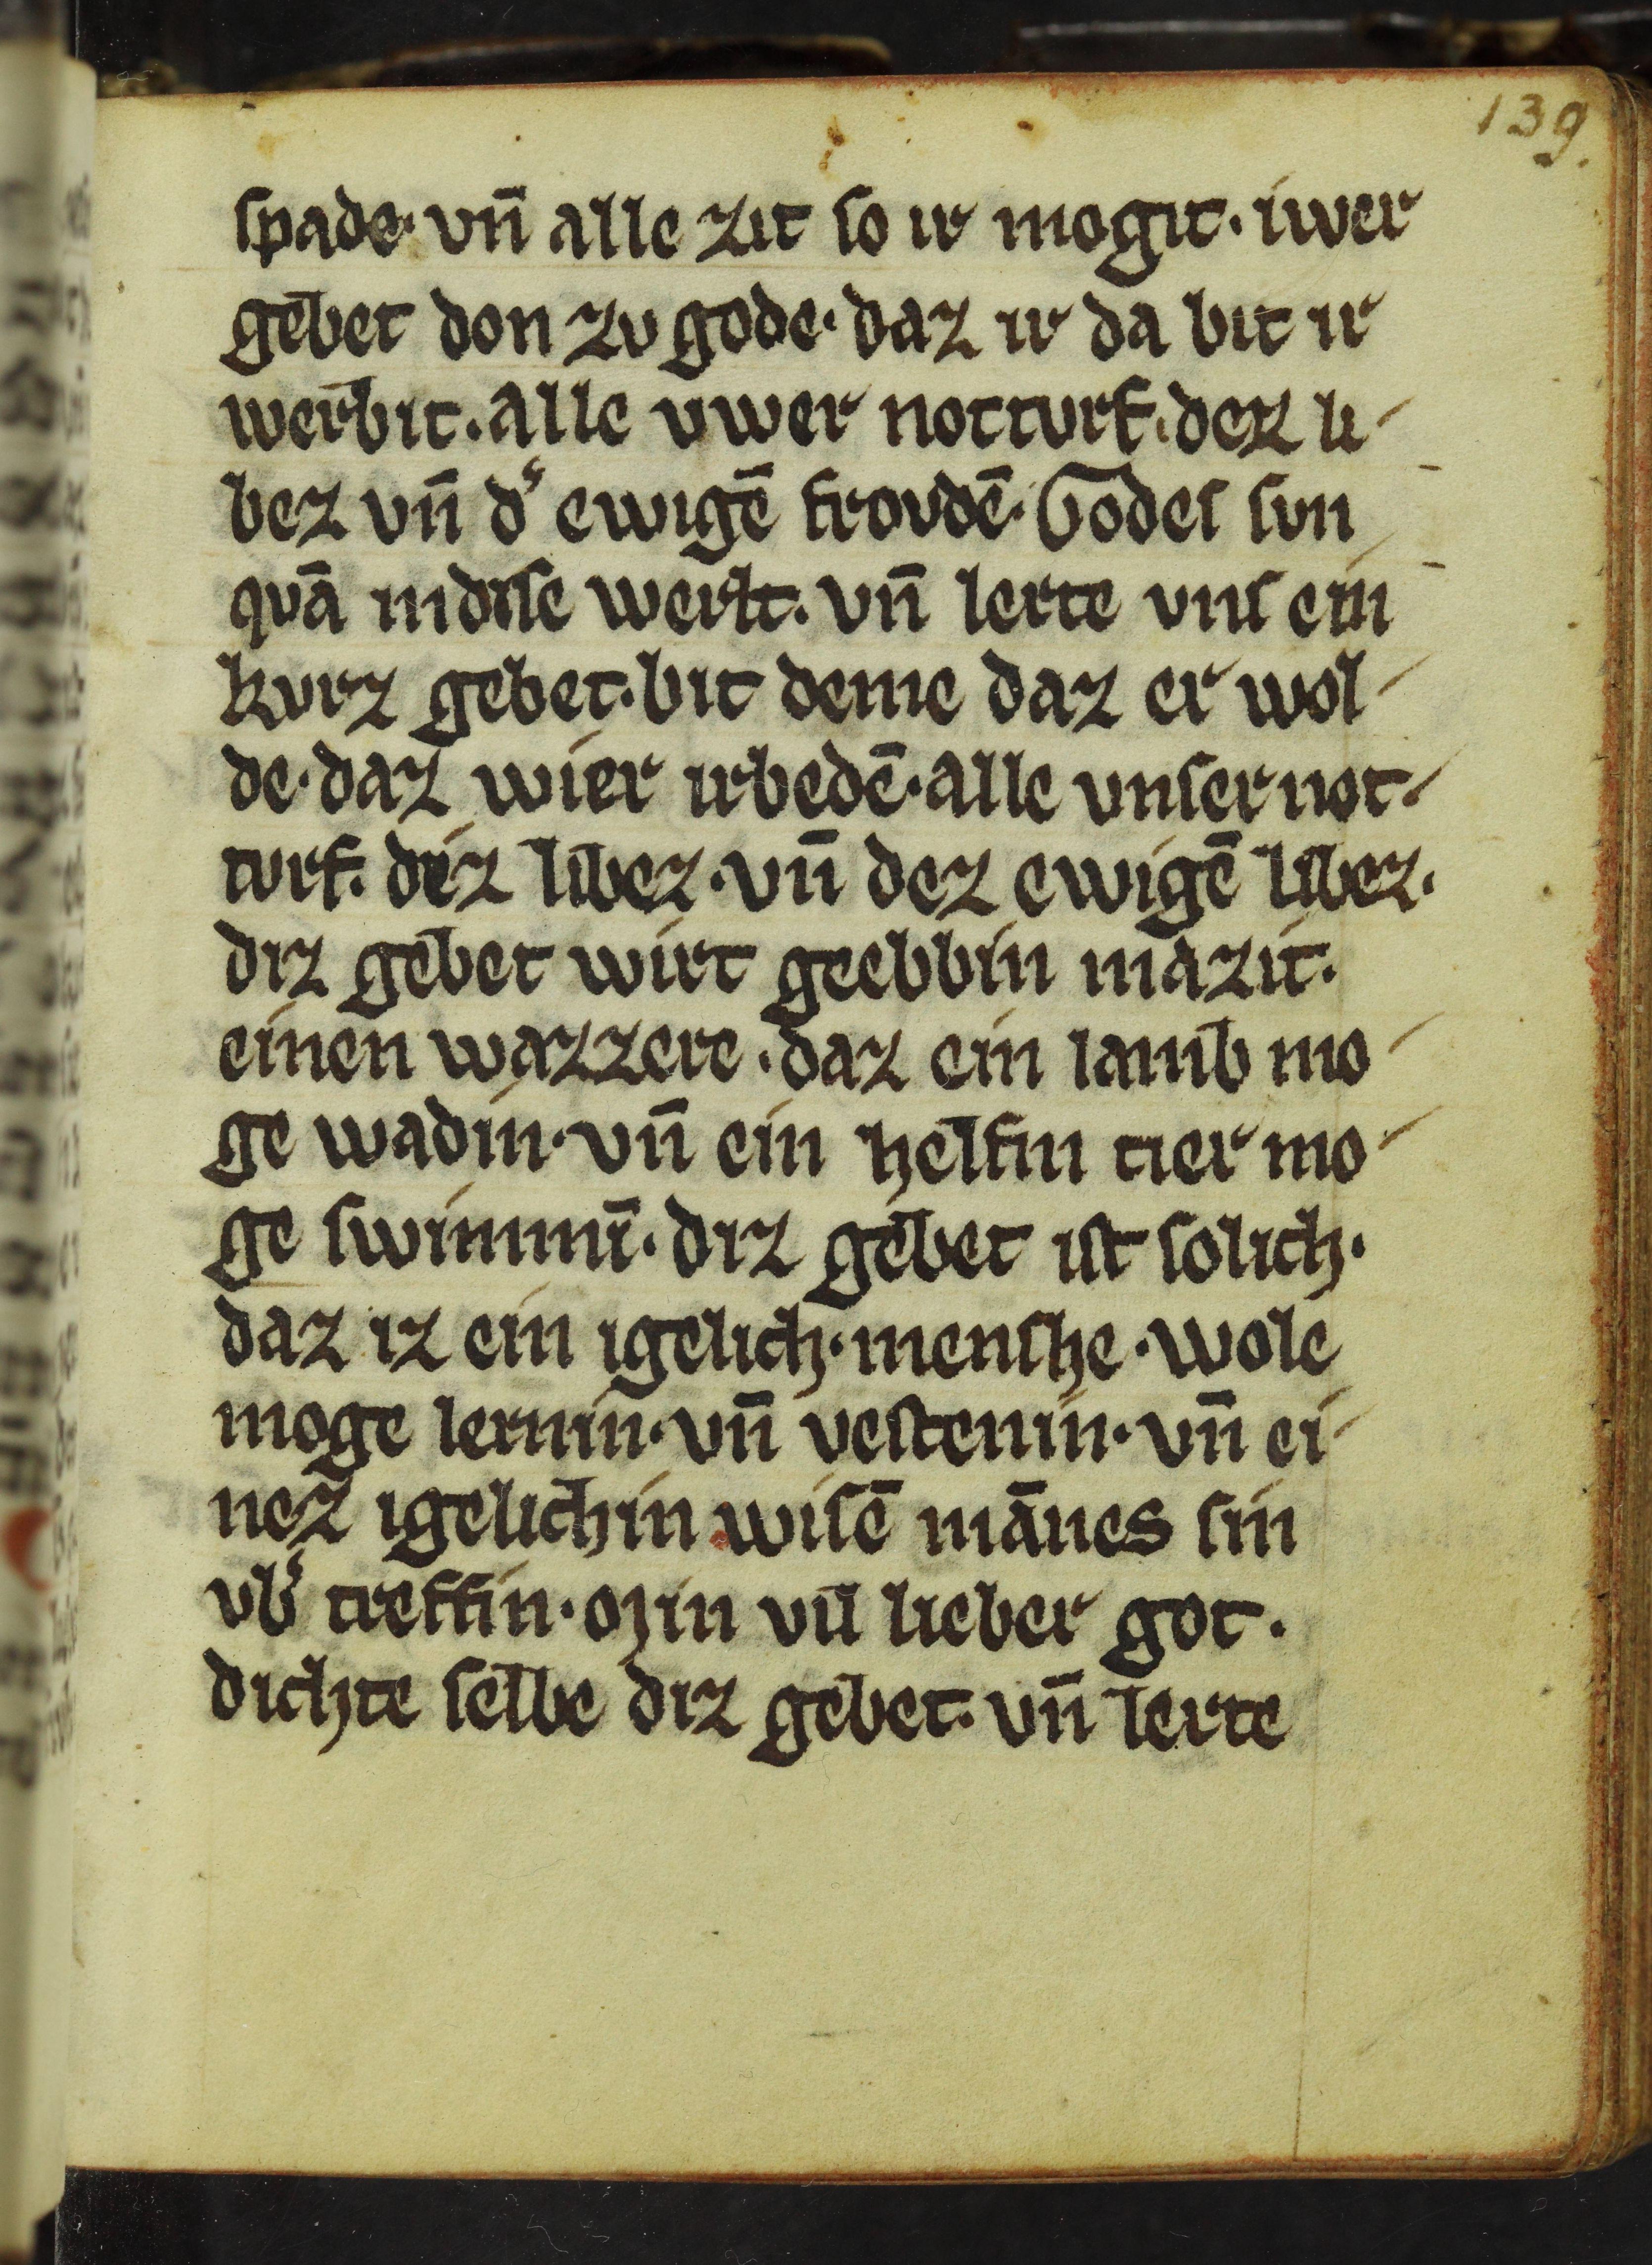 139.
spade· vn̄ alle zit so ir mogit· iwer
gebet don zv gode· daz ir da bit ir
werbit· alle vwer notturf· dez li-
bez vn̄ d͛ ewigē frovdē· Godes svn
qvā in dise werlt· vn̄ lerte vns ein
kvrz gebet· bit deme daz er wol-
de· daz wier irbedē· alle vnser not-
turf· diz libez· vn̄ dez ewigē libez·
diz gebet wirt geebbin mazit·
einen wazzere· daz ein lamb mo-
ge wadin· vn̄ ein helfin tier mo-
ge swimmī· diz gebet ist solich·
daz iz ein igelich· menshe· wole
moge lernin· vn̄ vestenin· vn̄ ei-
nez igelichin wisē mānes sin
vb͛ treffin· Min vil lieber got·
dichte selbe diz gebet· vn̄ lerte